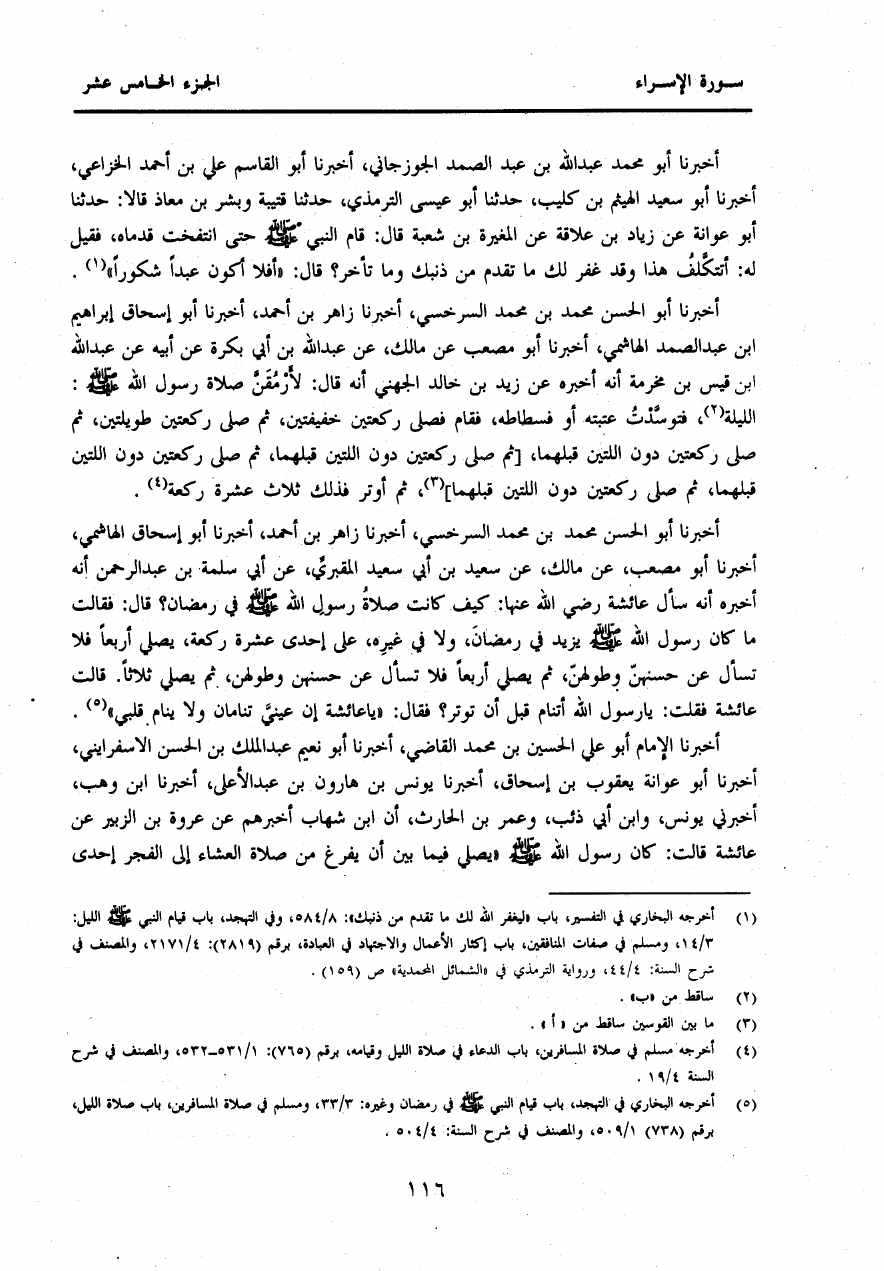 سـورة الإسـراء
الجزء الخـامس عشر
أخبرنا أبو محمد عبدالله بن عبد الصمد الجوزجاني، أخبرنا أبو القاسم علي بن أحمد الخزاعي،
أخبرنا أبو سعيد الهيثم بن كليب، حدثنا أبو عيسى الترمذي، حدثنا قتيبة وبشر بن معاذ قالا: حدثنا
أبو عوانة عن زياد بن علاقة عن المغيرة بن شعبة قال: قام النبي ﷺ حتى انتفخت قدماه، فقيل
له: أتتكَلَّفُ هذا وقد غفر لك ما تقدم من ذنبك وما تأخر؟ قال: «أفلا أكون عبداً شكوراً»(١) .
أخبرنا أبو الحسن محمد بن محمد السرخسي، أخبرنا زاهر بن أحمد، أخبرنا أبو إسحاق إبراهيم
ابن عبدالصمد الهاشمي، أخبرنا أبو مصعب عن مالك، عن عبدالله بن أبي بكرة عن أبيه عن عبدالله
ابن قيس بن مخرمة أنه أخبره عن زيد بن خالد الجهني أنه قال: لأَرْمُقَنَّ صلاة رسول الله ﷺ :
الليلة(٢)، فتوسَّدْتُ عتبته أو فسطاطه، فقام فصلى ركعتين خفيفتين، ثم صلى ركعتين طويلتين، ثم
صلى ركعتين دون اللتين قبلهما، [ثم صلى ركعتين دون اللتين قبلهما، ثم صلى ركعتين دون اللتين
قبلهما، ثم صلى ركعتين دون اللتين قبلهما](٣)، ثم أوتر فذلك ثلاث عشرة ركعة(٤) .
أخبرنا أبو الحسن محمد بن محمد السرخسي، أخبرنا زاهر بن أحمد، أخبرنا أبو إسحاق الهاشمي،
أخبرنا أبو مصعب، عن مالك، عن سعيد بن أبي سعيد المقبريِّ، عن أبي سلمة بن عبدالرحمن أنه
أخبره أنه سأل عائشة رضي الله عنها: كيف كانت صلاةُ رسولِ الله ﷺ في رمضان؟ قال: فقالت
ما كان رسول الله ﷺ يزيد في رمضانَ، ولا في غيرِه، على إحدى عشرة ركعة، يصلي أربعاً فلا
تسأل عن حسنهنّ وطولهنّ، ثم يصلي أربعاً فلا تسأل عن حسنهن وطولهن، ثم يصلي ثلاثاً. قالت
عائشة فقلت: يارسول الله أتنام قبل أن توتر؟ فقال: «ياعائشة إن عينيَّ تنامان ولا ينام قلبي»(٥) .
أخبرنا الإمام أبو علي الحسين بن محمد القاضي، أخبرنا أبو نعيم عبدالملك بن الحسن الاسفرايني،
أخبرنا أبو عوانة يعقوب بن إسحاق، أخبرنا يونس بن هارون بن عبدالأعلى، أخبرنا ابن وهب،
أخبرني يونس، وابن أبي ذئب، وعمر بن الحارث، أن ابن شهاب أخبرهم عن عروة بن الزبير عن
عائشة قالت: كان رسول الله ﷺ «يصلي فيما بين أن يفرغ من صلاة العشاء إلى الفجر إحدى
(١) أخرجه البخاري في التفسير، باب «ليغفر الله لك ما تقدم من ذنبك»: ٥٨٤/٨، وفي التهجد، باب قيام النبي ﷺ الليل:
١٤/٣، ومسلم في صفات المنافقين، باب إكثار الأعمال والاجتهاد في العبادة، برقم (٢٨١٩): ٢١٧١/٤، والمصنف في
شرح السنة: ٤٤/٤، ورواية الترمذي في «الشمائل المحمدية» ص (١٥٩) .
(٢) ساقط من «ب» .
(٣) ما بين القوسين ساقط من «أ» .
(٤) أخرجه مسلم في صلاة المسافرين، باب الدعاء في صلاة الليل وقيامه، برقم (٧٦٥): ٥٣١/١-٥٣٢، والمصنف في شرح
السنة ١٩/٤ .
(٥) أخرجه البخاري في التهجد، باب قيام النبي ﷺ في رمضان وغيره: ٣٣/٣، ومسلم في صلاة المسافرين، باب صلاة الليل،
برقم (٧٣٨) ٥٠٩/١، والمصنف في شرح السنة: ٥٠٤/٤ .
١١٦